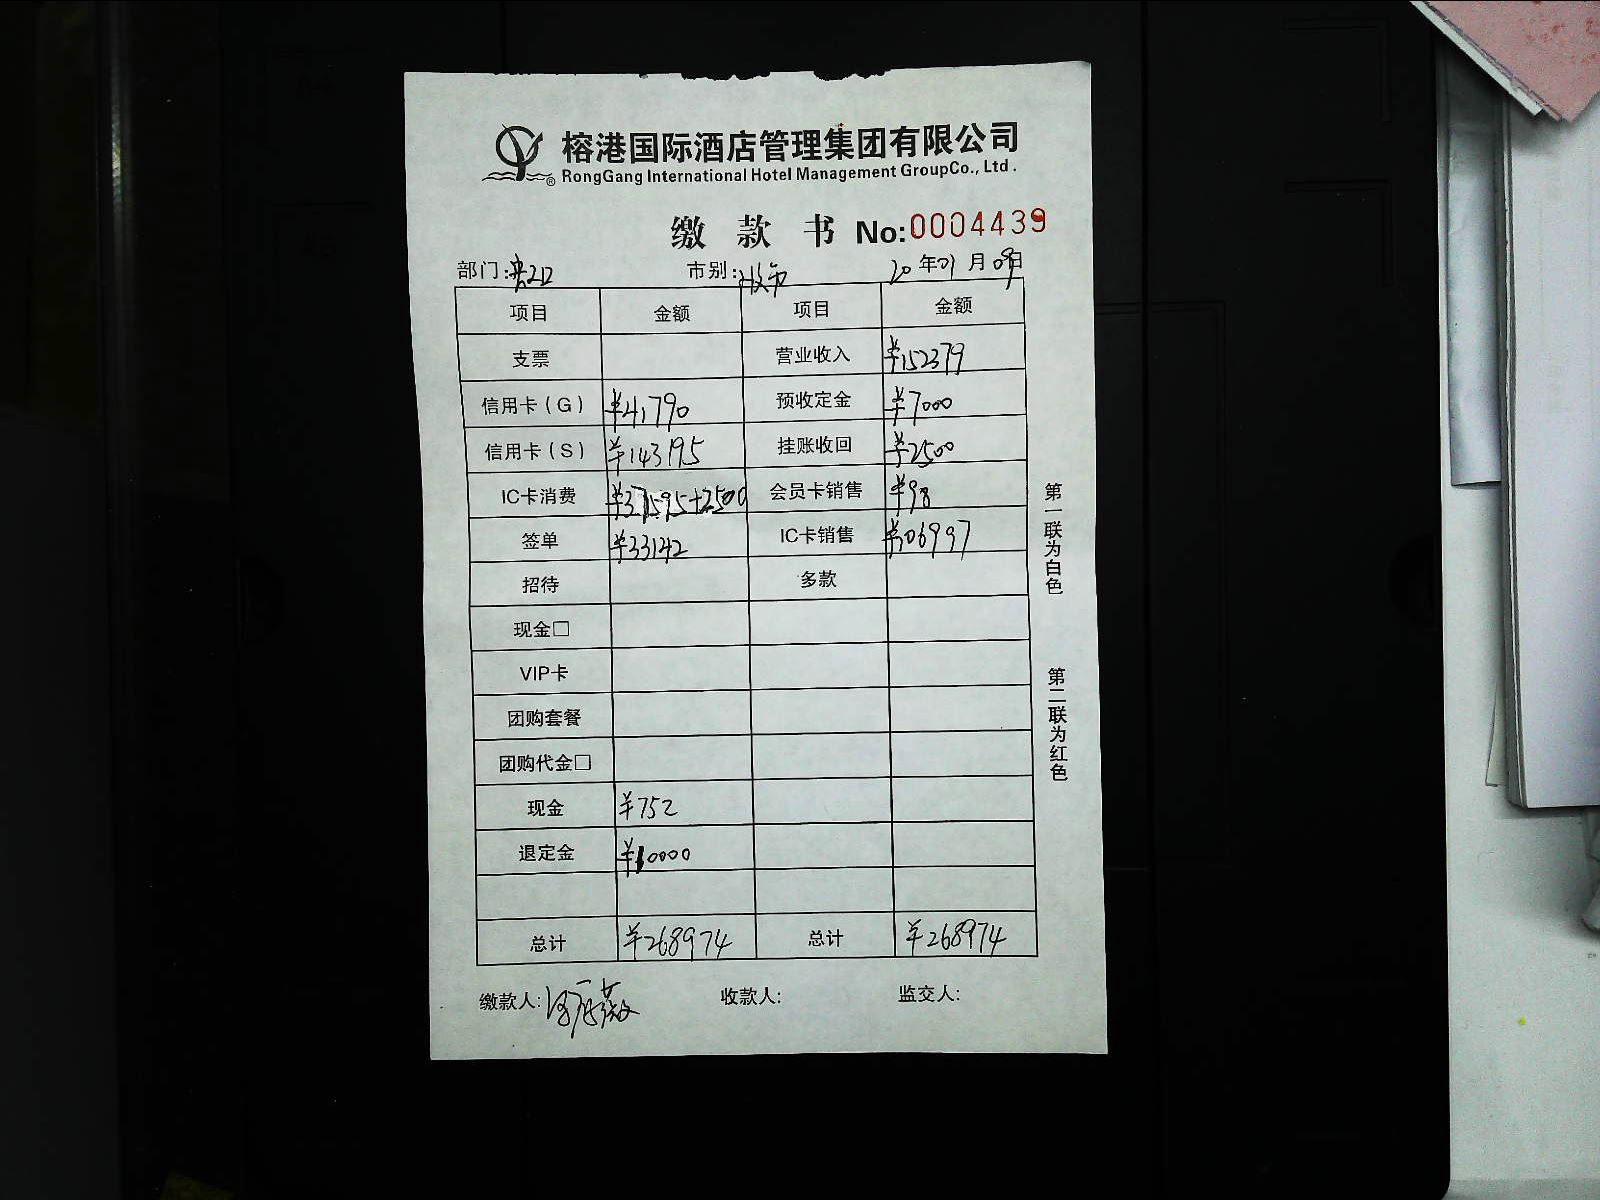 榕港国际酒店管理集团有限公司
RongGang International Hotel Management GroupCo., Ltd.
缴款书 No:0004439
部门: 市别: 20年01月09日
项目 金额 项目 金额
支票 营业收入 ¥152379
信用卡(G) ¥41790 预收定金 ¥7000
信用卡(S) ¥143195 挂账收回 ¥2500
IC卡消费 ¥37595+2500 会员卡销售 ¥98
签单 ¥33142 IC卡销售 ¥106997
招待 多款
现金□
VIP卡
团购套餐
团购代金□
现金 ¥752
退定金 ¥10000
总计 ¥268974 总计 ¥268974
缴款人: 收款人: 监交人:
第一联为白色
第二联为红色